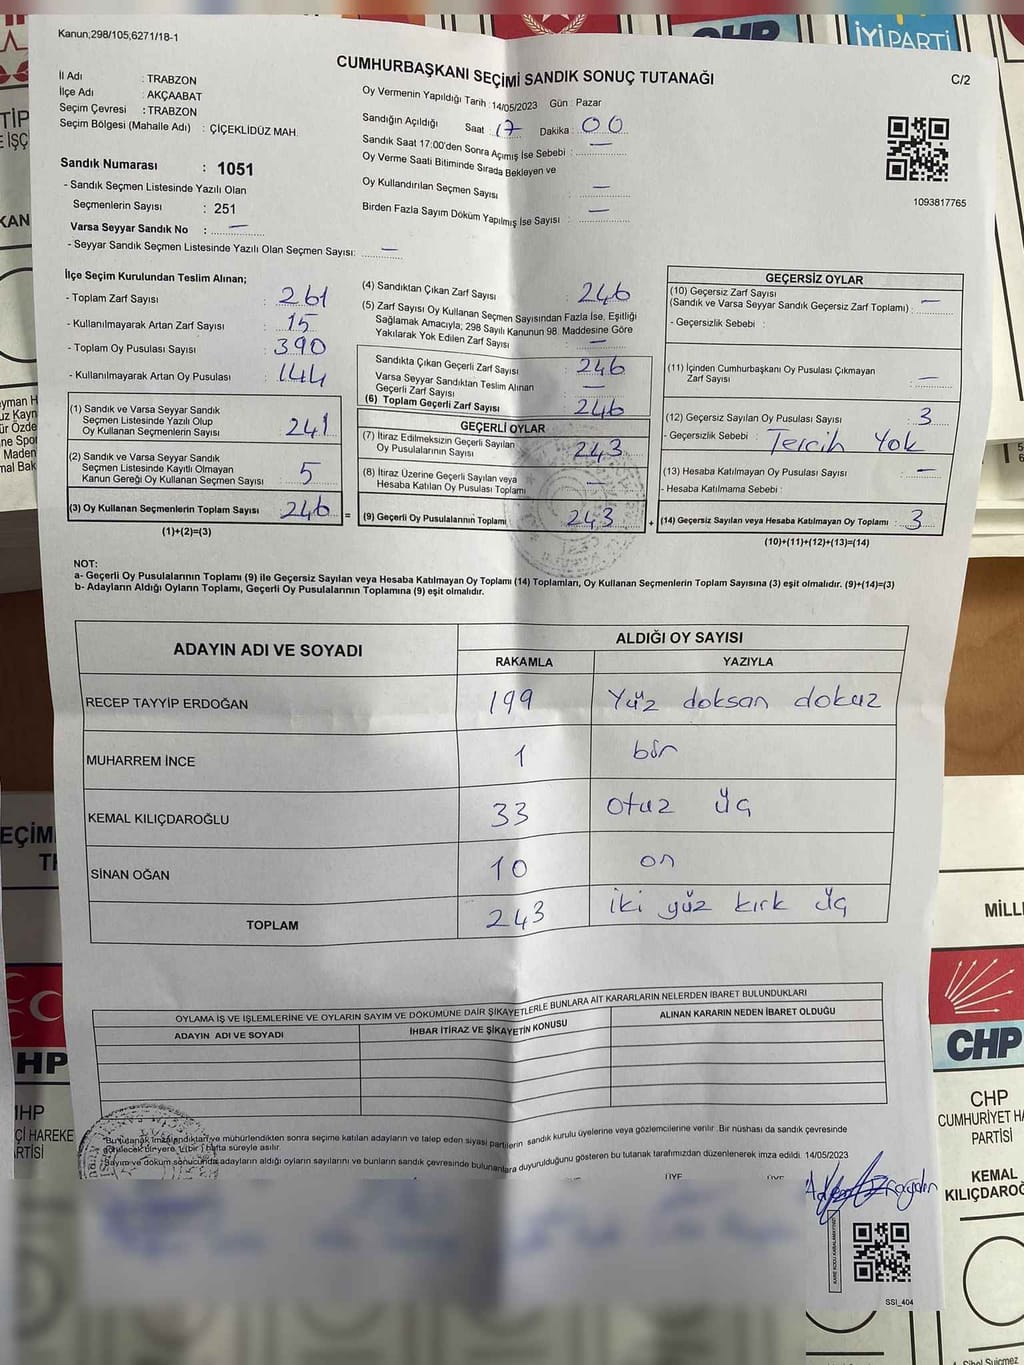 Kanun;298/105,6271/18-1
CUMHURBAŞKANI SEÇİMİ SANDIK SONUÇ TUTANAĞI
C/2
İl Adı : TRABZON
İlçe Adı : AKÇAABAT
Seçim Çevresi : TRABZON
Seçim Bölgesi (Mahalle Adı) : ÇİÇEKLİDÜZ MAH.
Sandık Numarası : 1051
- Sandık Seçmen Listesinde Yazılı Olan
Seçmenlerin Sayısı : 251
Varsa Seyyar Sandık No : —
- Seyyar Sandık Seçmen Listesinde Yazılı Olan Seçmen Sayısı: —
Oy Vermenin Yapıldığı Tarih : 14/05/2023 Gün : Pazar
Sandığın Açıldığı Saat : 17 Dakika : 00
Sandık Saat 17:00'den Sonra Açımış İse Sebebi : —
Oy Verme Saati Bitiminde Sırada Bekleyen ve
Oy Kullandırılan Seçmen Sayısı : —
Birden Fazla Sayım Döküm Yapılmış İse Sayısı : —
1093817765
İlçe Seçim Kurulundan Teslim Alınan;
- Toplam Zarf Sayısı : 261
- Kullanılmayarak Artan Zarf Sayısı : 15
- Toplam Oy Pusulası Sayısı : 390
- Kullanılmayarak Artan Oy Pusulası : 144
(1) Sandık ve Varsa Seyyar Sandık
Seçmen Listesinde Yazılı Olup
Oy Kullanan Seçmenlerin Sayısı : 241
(2) Sandık ve Varsa Seyyar Sandık
Seçmen Listesinde Kayıtlı Olmayan
Kanun Gereği Oy Kullanan Seçmen Sayısı : 5
(3) Oy Kullanan Seçmenlerin Toplam Sayısı : 246 =
(1)+(2)=(3)
(4) Sandıktan Çıkan Zarf Sayısı : 246
(5) Zarf Sayısı Oy Kullanan Seçmen Sayısından Fazla İse, Eşitliği
Sağlamak Amacıyla; 298 Sayılı Kanunun 98. Maddesine Göre
Yakılarak Yok Edilen Zarf Sayısı : —
Sandıkta Çıkan Geçerli Zarf Sayısı : 246
Varsa Seyyar Sandıktan Teslim Alınan
Geçerli Zarf Sayısı : —
(6) Toplam Geçerli Zarf Sayısı : 246
GEÇERLİ OYLAR
(7) İtiraz Edilmeksizin Geçerli Sayılan
Oy Pusulalarının Sayısı : 243
(8) İtiraz Üzerine Geçerli Sayılan veya
Hesaba Katılan Oy Pusulası Toplamı : —
(9) Geçerli Oy Pusulalarının Toplamı : 243 +
GEÇERSİZ OYLAR
(10) Geçersiz Zarf Sayısı
(Sandık ve Varsa Seyyar Sandık Geçersiz Zarf Toplamı) : —
- Geçersizlik Sebebi :
(11) İçinden Cumhurbaşkanı Oy Pusulası Çıkmayan
Zarf Sayısı : —
(12) Geçersiz Sayılan Oy Pusulası Sayısı : 3
- Geçersizlik Sebebi : Tercih Yok
(13) Hesaba Katılmayan Oy Pusulası Sayısı : —
- Hesaba Katılmama Sebebi :
(14) Geçersiz Sayılan veya Hesaba Katılmayan Oy Toplamı : 3
(10)+(11)+(12)+(13)=(14)
NOT:
a- Geçerli Oy Pusulalarının Toplamı (9) ile Geçersiz Sayılan veya Hesaba Katılmayan Oy Toplamı (14) Toplamları, Oy Kullanan Seçmenlerin Toplam Sayısına (3) eşit olmalıdır. (9)+(14)=(3)
b- Adayların Aldığı Oyların Toplamı, Geçerli Oy Pusulalarının Toplamına (9) eşit olmalıdır.
ADAYIN ADI VE SOYADI
ALDIĞI OY SAYISI
RAKAMLA YAZIYLA
RECEP TAYYİP ERDOĞAN 199 Yüz doksan dokuz
MUHARREM İNCE 1 bir
KEMAL KILIÇDAROĞLU 33 otuz üç
SİNAN OĞAN 10 on
TOPLAM 243 iki yüz kırk üç
OYLAMA İŞ VE İŞLEMLERİNE VE OYLARIN SAYIM VE DÖKÜMÜNE DAİR ŞİKAYETLERLE BUNLARA AİT KARARLARIN NELERDEN İBARET BULUNDUKLARI
ADAYIN ADI VE SOYADI
İHBAR İTİRAZ VE ŞİKAYETİN KONUSU
ALINAN KARARIN NEDEN İBARET OLDUĞU
Bu tutanak imzalandıktan ve mühürlendikten sonra seçime katılan adayların ve talep eden siyasi partilerin sandık kurulu üyelerine veya gözlemcilerine verilir .Bir nüshası da sandık çevresinde
bir yere 1 (bir ) hafta süreyle asılır.
Sayım ve döküm sonucunda adayların aldığı oyların sayılarını ve bunların sandık çevresinde bulunanlara duyurulduğunu gösteren bu tutanak tarafımızdan düzenlenerek imza edildi. 14/05/2023
ÜYE ÜYE
SSİ_404
CHP
İYİ PARTİ
TİP
MİLL
CHP
CHP
CUMHURİYET HA
PARTİSİ
KEMAL
KILIÇDAROĞ
HP
MHP
Çİ HAREKE
RTİSİ